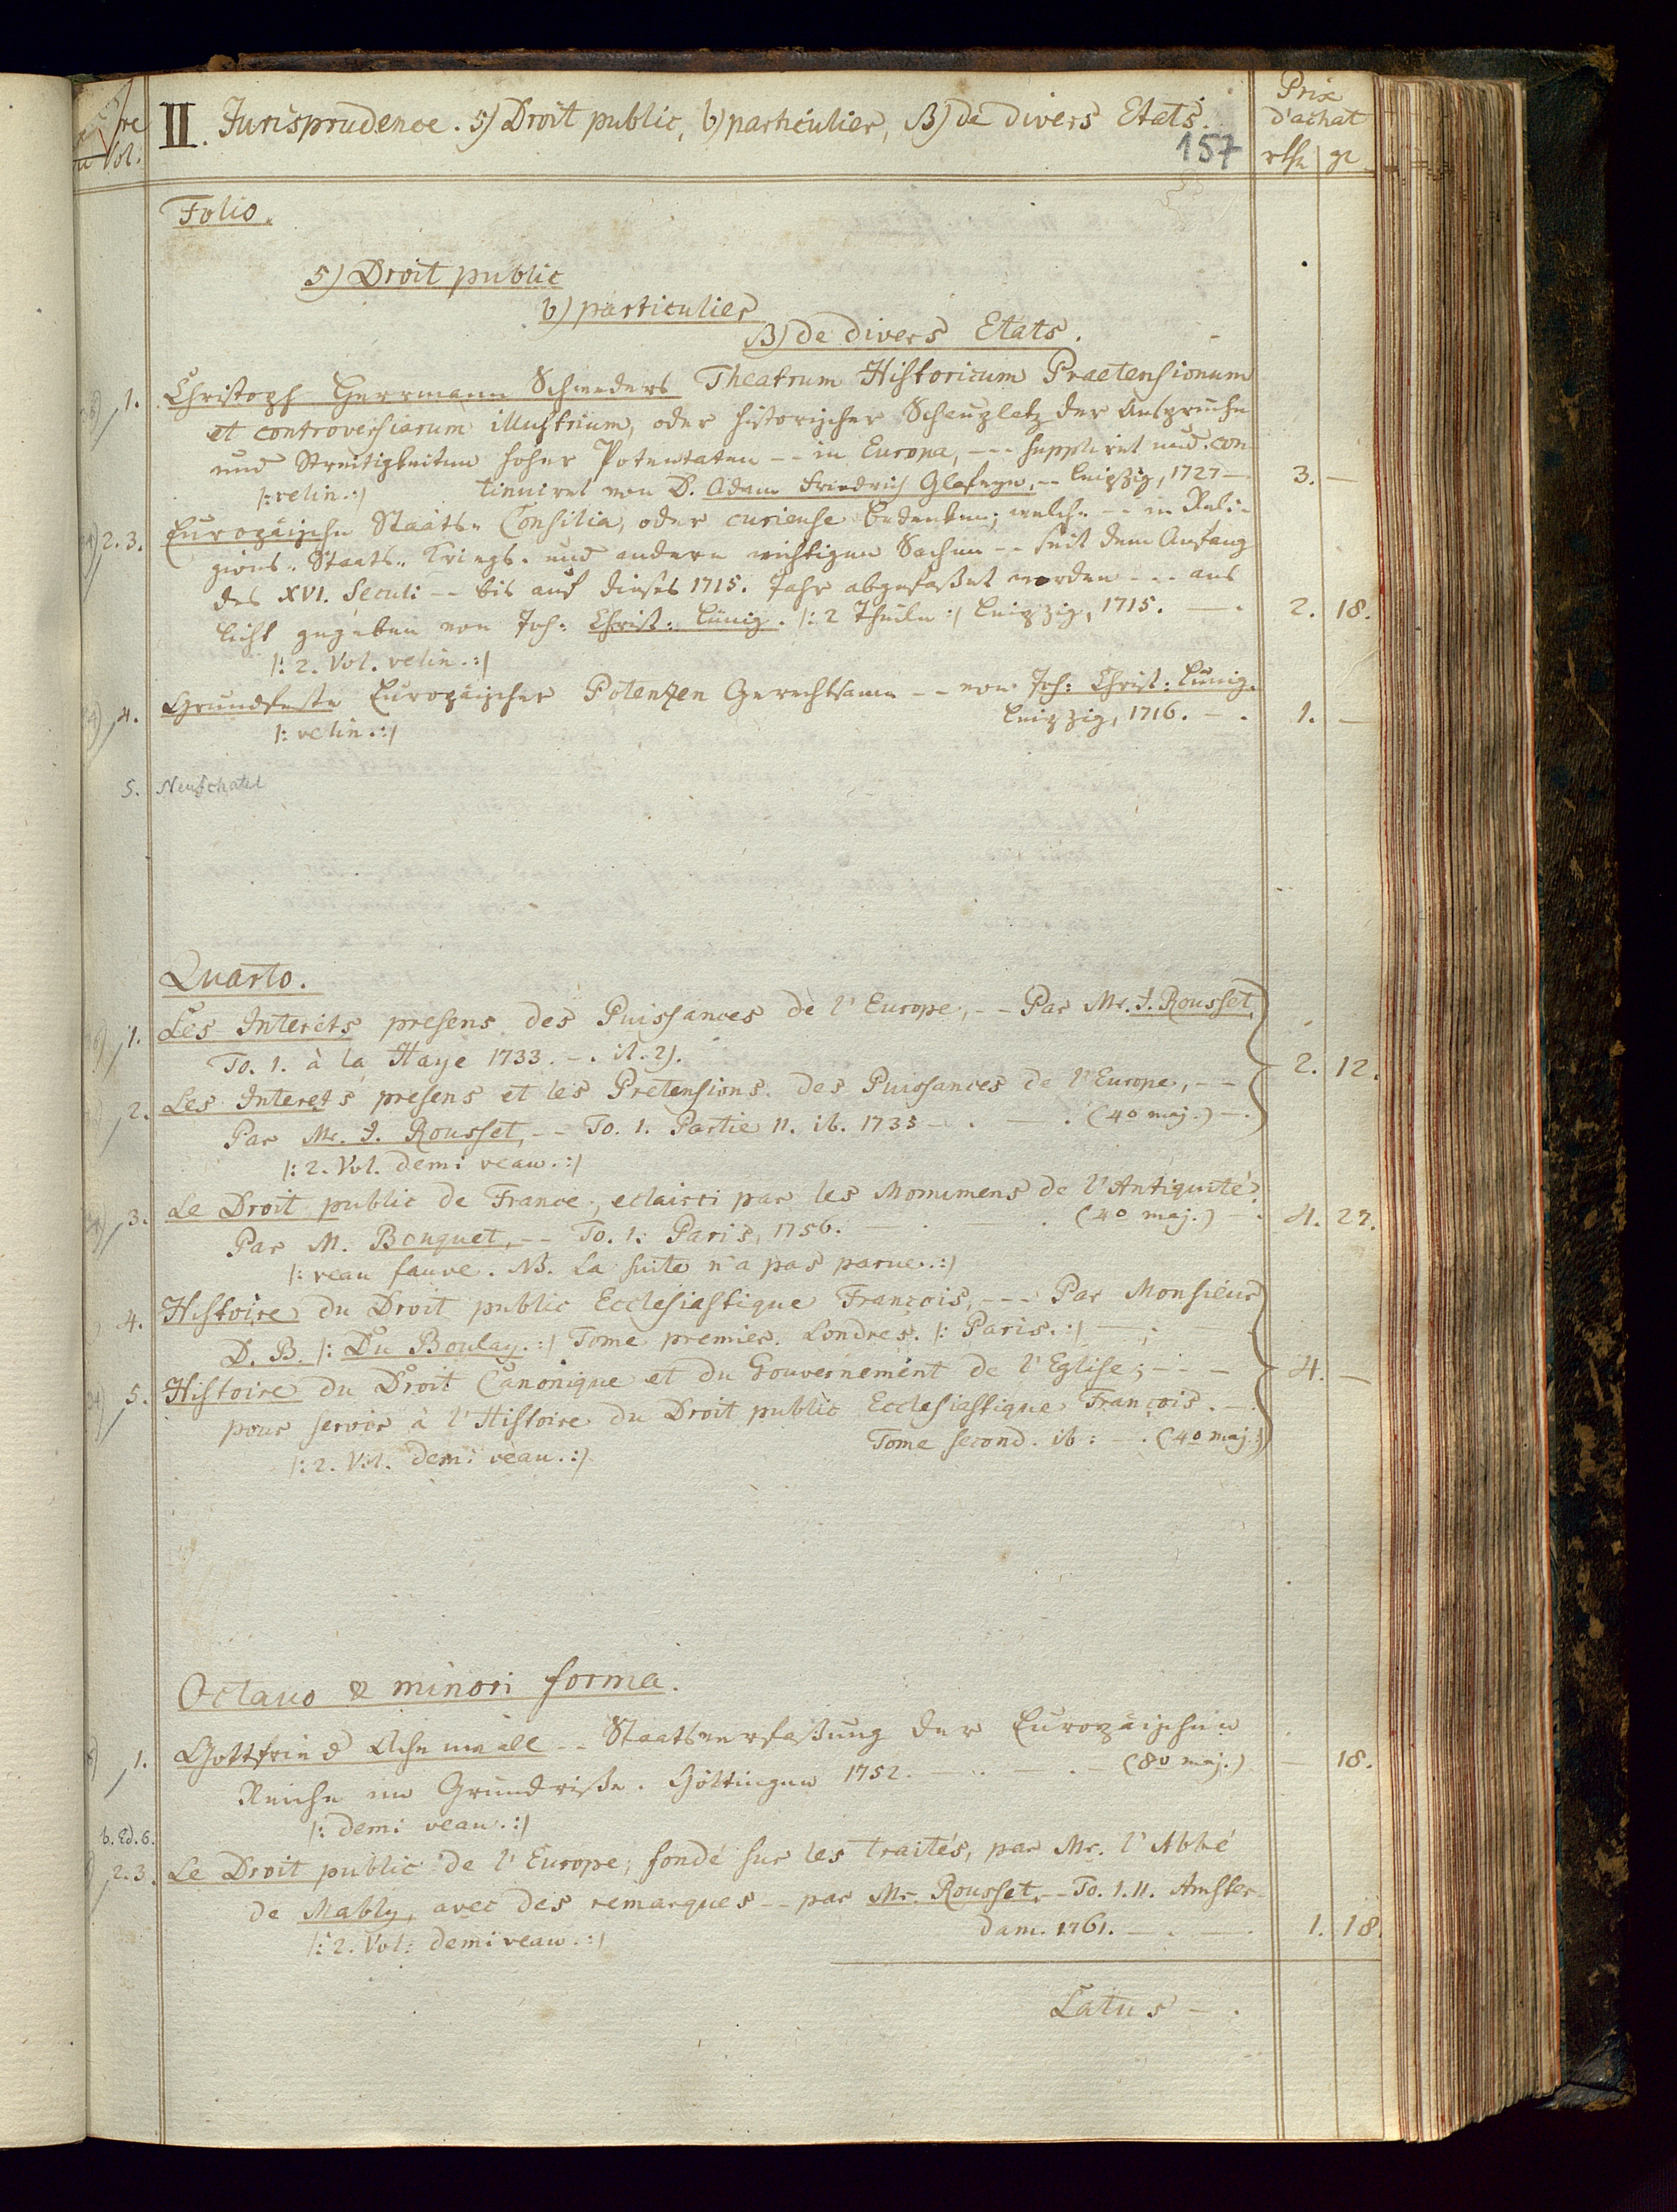 II. Jurisprudence. 5) Droit public, b) particulier, β) de divers Etats.
Prix
d'achat
rthr gr
Vol.
157
Folio.
5) Droit public
b) particulier
β) de divers Etats.
1. Christoph Herrmann Schweders Theatrum Historicum Praetensionum
et controversiarum illustrium, oder historischer Schauplatz der Ansprüche
und Streitigkeiten hoher Potentaten -- in Europa, --- suppliret und con-
/: velin. :/ tinuiret von D. Adam Friedrich Glafeyn, -- Leipzig, 1727 — 3. —
2. 3. Europäische Staats- Consilia, oder curieuse Bedenken, welche -- in Reli-
gions- Staats- Kriegs- und andern wichtigen Sachen -- seit dem Anfang
des XVI. Seculi -- bis auf dieses 1715. Jahr abgefaßet worden --- ans
Licht gegeben von Joh: Christ: Lünig. /: 2 Theile :/ Leipzig, 1715. — . 2. 18.
/: 2. Vol. velin. :/
4. Grundfeste Europäischer Potenzen Gerechtsame -- von Joh: Christ: Lünig.
/: velin. :/ Leipzig, 1716. — . 1. —
5. Neufchatel
Quarto.
1. Les Interêts presens des Puissances de l'Europe, -- Par Mr. J. Rousset,
To. 1. à la Haye 1733. — . 2. 12.
2. Les Interets presens et les Pretensions des Puissances de l'Europe, --
Par Mr. J. Rousset, -- To. 1. Partie II. ib. 1735 — . — . (4o maj.) — .
/: 2. Vol. demi veau. :/
3. Le Droit public de France, eclairci par les Monumens de l'Antiquité.
Par M. Bouquet, -- To. 1. Paris, 1756. — . — . (4o maj.) — . 4. 22.
/: veau fauve. NB. La suite n'a pas parue. :/
4. Histoire du Droit public Ecclesiastique François, --- Par Monsieur
D. B. /: Du Boulay. :/ Tome premier. Londres. /: Paris. :/ — . —
5. Histoire du Droit Canonique et du Gouvernement de l'Eglise; --- 4. —
pour servir à l'Histoire du Droit public Ecclesiastique François. — .
Tome second. ib: — . (4o maj.)
/: 2. Vol. demi veau. :/
Octavo & minori forma.
1. Gottfried Achenwall -- Staatsverfaßung der Europäischen
Reiche im Grundriße. Göttingen 1752. — . — . — (8o maj.) — 18.
/: demi veau. :/
b. Ed. 6.
2. 3. Le Droit public de l'Europe, fondé sur les traités, par Mr. l'Abbé
de Mably, avec des remarques -- par Mr. Rousset, - To. I. II. Amster-
dam. 1761. — . — . 1. 18.
/: 2. Vol: demi veau. :/
Latus — .